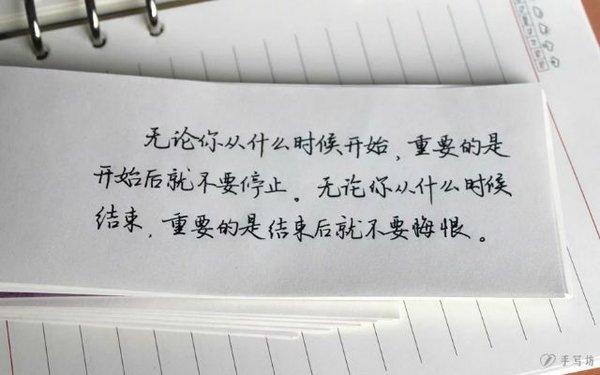 无论你从什么时候开始，重要的是
开始后就不要停止。无论你从什么时候
结束，重要的是结束后就不要悔恨。
手写坊